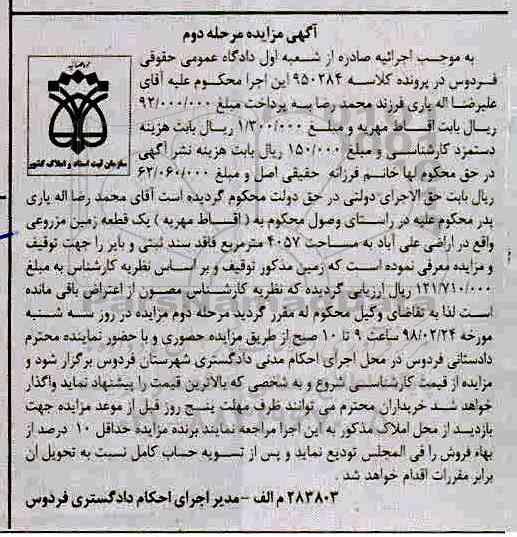 آگهی مزایده مرحله دوم
به موجب اجرائیه صادره از شعبه اول دادگاه عمومی حقوقی
فردوس در پرونده کلاسه ۹۵۰۲۸۴ این اجرا محکوم علیه آقای
علیرضا اله یاری فرزند محمد رضا به پرداخت مبلغ ۹۲/۰۰۰/۰۰۰
ریال بابت اقساط مهریه و مبلغ ۱/۳۰۰/۰۰۰ ریال بابت هزینه
دستمزد کارشناسی و مبلغ ۱۵۰/۰۰۰ ریال بابت هزینه نشر آگهی
سازمان ثبت اسناد و املاک کشور
در حق محکوم لها خانم فرزانه حقیقی اصل و مبلغ ۶۳/۰۶۰/۰۰۰
ریال بابت حق الاجرای دولتی در حق دولت محکوم گردیده است آقای محمد رضا اله یاری
پدر محکوم علیه در راستای وصول محکوم به ( اقساط مهریه ) یک قطعه زمین مزروعی
واقع در اراضی علی آباد به مساحت ۴۰۵۷ مترمربع فاقد سند ثبتی و بایر را جهت توقیف
و مزایده معرفی نموده است که زمین مذکور توقیف و بر اساس نظریه کارشناس به مبلغ
۱۲۱/۷۱۰/۰۰۰ ریال ارزیابی گردیده که نظریه کارشناس مصون از اعتراض باقی مانده
است لذا به تقاضای وکیل محکوم له مقرر گردید مرحله دوم مزایده در روز سه شنبه
مورخه ۹۸/۰۲/۲۴ ساعت ۹ تا ۱۰ صبح از طریق مزایده حضوری و با حضور نماینده محترم
دادستانی فردوس در محل اجرای احکام مدنی دادگستری شهرستان فردوس برگزار شود و
مزایده از قیمت کارشناسی شروع و به شخصی که بالاترین قیمت را پیشنهاد نماید واگذار
خواهد شد خریداران محترم می توانند ظرف مهلت پنج روز قبل از موعد مزایده جهت
بازدید از محل املاک مذکور به این اجرا مراجعه نمایند برنده مزایده حداقل ۱۰ درصد از
بهاء فروش را فی المجلس تودیع نماید و پس از تسویه حساب کامل نسبت به تحویل آن
برابر مقررات اقدام خواهد شد .
۲۸۳۸۰۳ م الف -مدیر اجرای احکام دادگستری فردوس